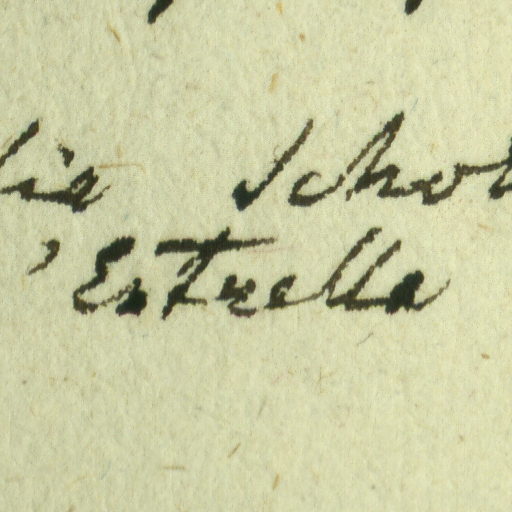 lie Schol
'Estrella